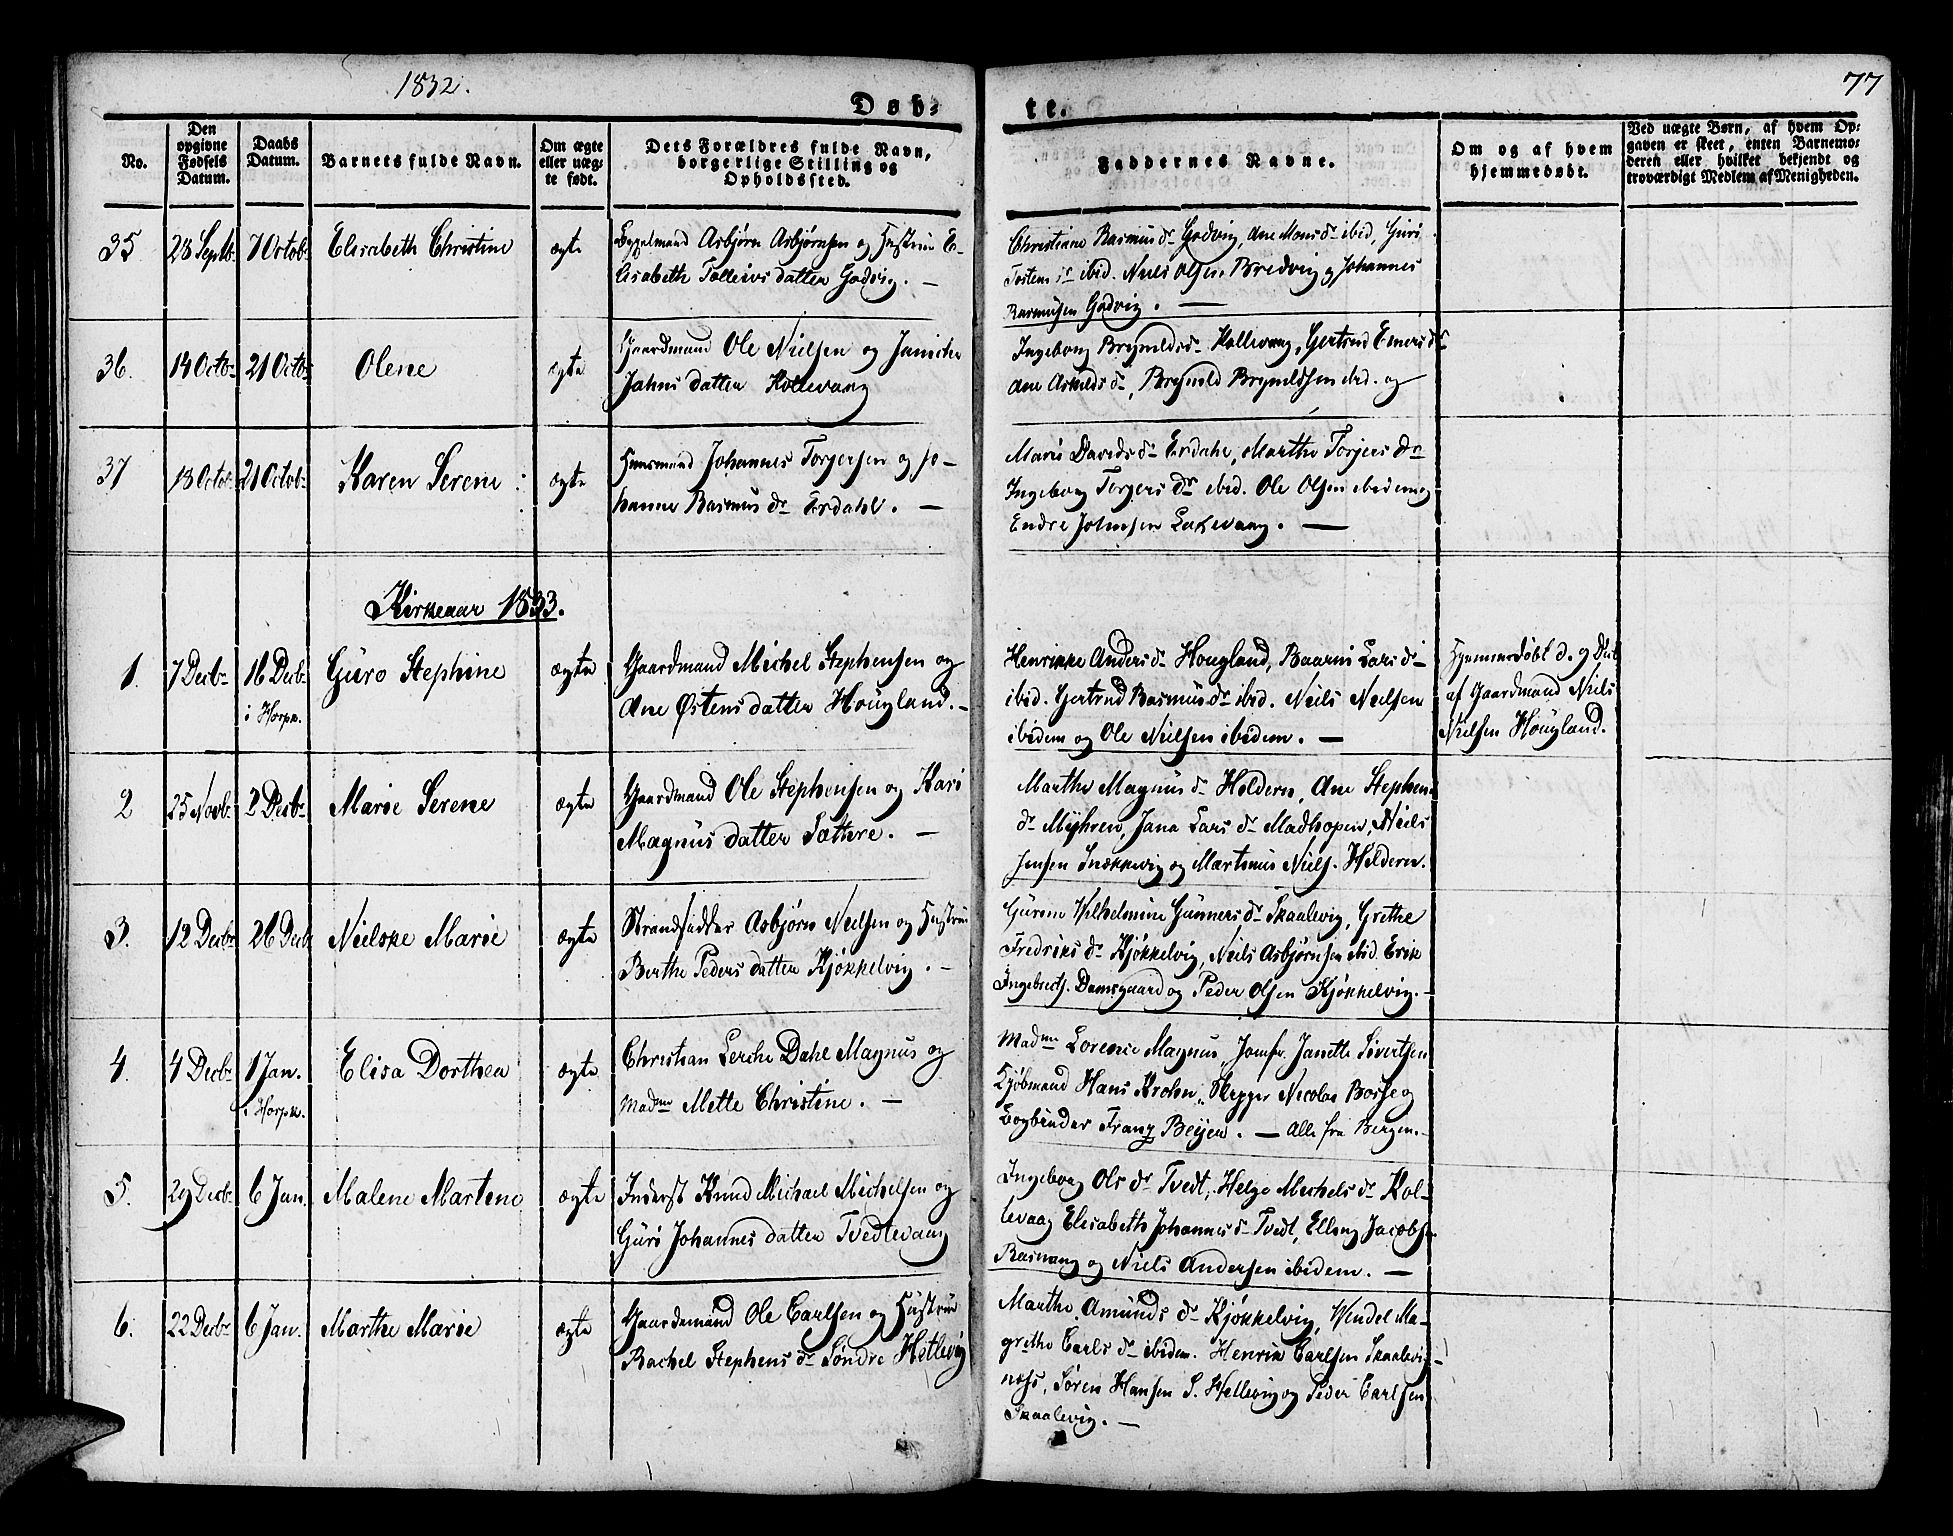 1832.
77
Døb-
te.
No.
Den opgivne Fødsels Datum.
Daabs Datum.
Barnets fulde Navn.
Om ægte eller uægte født.
Dets Forældres fulde Navn, borgerlige Stilling og Opholdssted.
Faddernes Navne.
Om og af hvem hjemmedøbt.
Ved uægte Børn, af hvem Op-
gaven er skeet, enten Barnemo-
deren eller hvilket bekjendt og
troværdigt Medlem af Menigheden.
35 23 Septb. 7 Octob. Elisabeth Christine ægte
Asbjørn Asbjørnsen og Hustrue E-
lisabeth Tolleivsdatter Godvig. —
Christiane Rasmusdr Godvig, Ane Monsdr ibid. Guri
Tostensdr ibid. Niels Olsen Bredvig og Johannes
Rasmussen Godvig. —
36. 14 Octb. 21 Octb. Olene ægte
Gaardmand Ole Nielsen og Janiche
Jahns datter Kollevaag
Ingeborg Brynildsdr Kollevaag, Gertrud Einersdr
Ane Askildsdr, Brynild Brynildsen ibid. og
37 13 Octob. 21 Octob. Karen Serene ægte
Huusmand Johannes Torgersen og Jo-
hanne Rasmus dr Erdahl. —
Mari Davids dr Erdahl, Marthe Torjers dr
Ingeborg Torgers dr ibid. Ole Olsen ibidem og
Endre Johnsen Lokevaag. —
Kirkeaar 1833.
1. 7 Decbr 16 Decb. i Horpk. Guro Stephine ægte
Gaardmand Michel Stephensen og
Ane Østens datter Hougland. -
Henrikke Andersdr Hougland, Baarni Larsdr
ibid. Gertrud Rasmusdr ibid. Niels Nielsen
ibidem og Ole Nielsen ibidem. —
Hjemmedøbt d. 9 Decb
af Gaardmand Niels
Nielsen Hougland.
2 25 Novb. 2 Decbr Marie Serene ægte
Gaardmand Ole Stephensen og Kari
Magnus datter Sættere. —
Marthe Magnus dr Holderen, Ane Stephens
dr Myhren, Jana Lars dr Madhopen, Niels
Jensen Snekkevig og Martinus Niels. Holderen.
3. 12 Decbr 26 Decb Nielske Marie ægte
Strandsidder Asbjørn Nielsen og Hustrue
Berthe Peders datter Kjøkkelvig. -
Gurine Wilhelmine Gunners dr Skaalevig, Grethe
Fredriks dr Kjøkkelvig, Niels Asbjørnsen ibid. Erik
Ingebrets. Damsgaard og Peder Olsen Kjøkkelvig. -
4. 4 Decbr 1 Jan. i Horpk. Elisa Dorthea ægte
Christian Lerche Dahl Magnus og
Madme Mette Christine. —
Madme Lorence Magnus, Jomfr. Janette Sivertsen
Kjøbmand Hans Krohn, Skipper Nicolai Borse og
Bogbinder Franz Beyer. — Alle fra Bergen. -
5. 29 Decb. 6 Jan. Malene Martene ægte
Inderst Knud Michael Michelsen og
Guri Johannes datter Tvedtevaag
Ingeborg Ols dr Tvedt, Helge Michels dr Kol-
levaag Elisabeth Johannes dr Tvedt, Elling Jacobs.
Rasnaag og Niels Andersen ibidem. —
6. 22 Decbr 6 Jan. Marthe Marie ægte
Gaardmand Ole Carlsen og Hustrue
Rachel Stephens dr Søndre Hetlevig
Marthe Amunds dr Kjøkkelvig, Wendel Ma-
grethe Carls dr ibidem. Henrik Carlsen Skaalevig-
næss, Søren Hansen S. Hetlevig og Peder Carlsen
Skaalevig. —